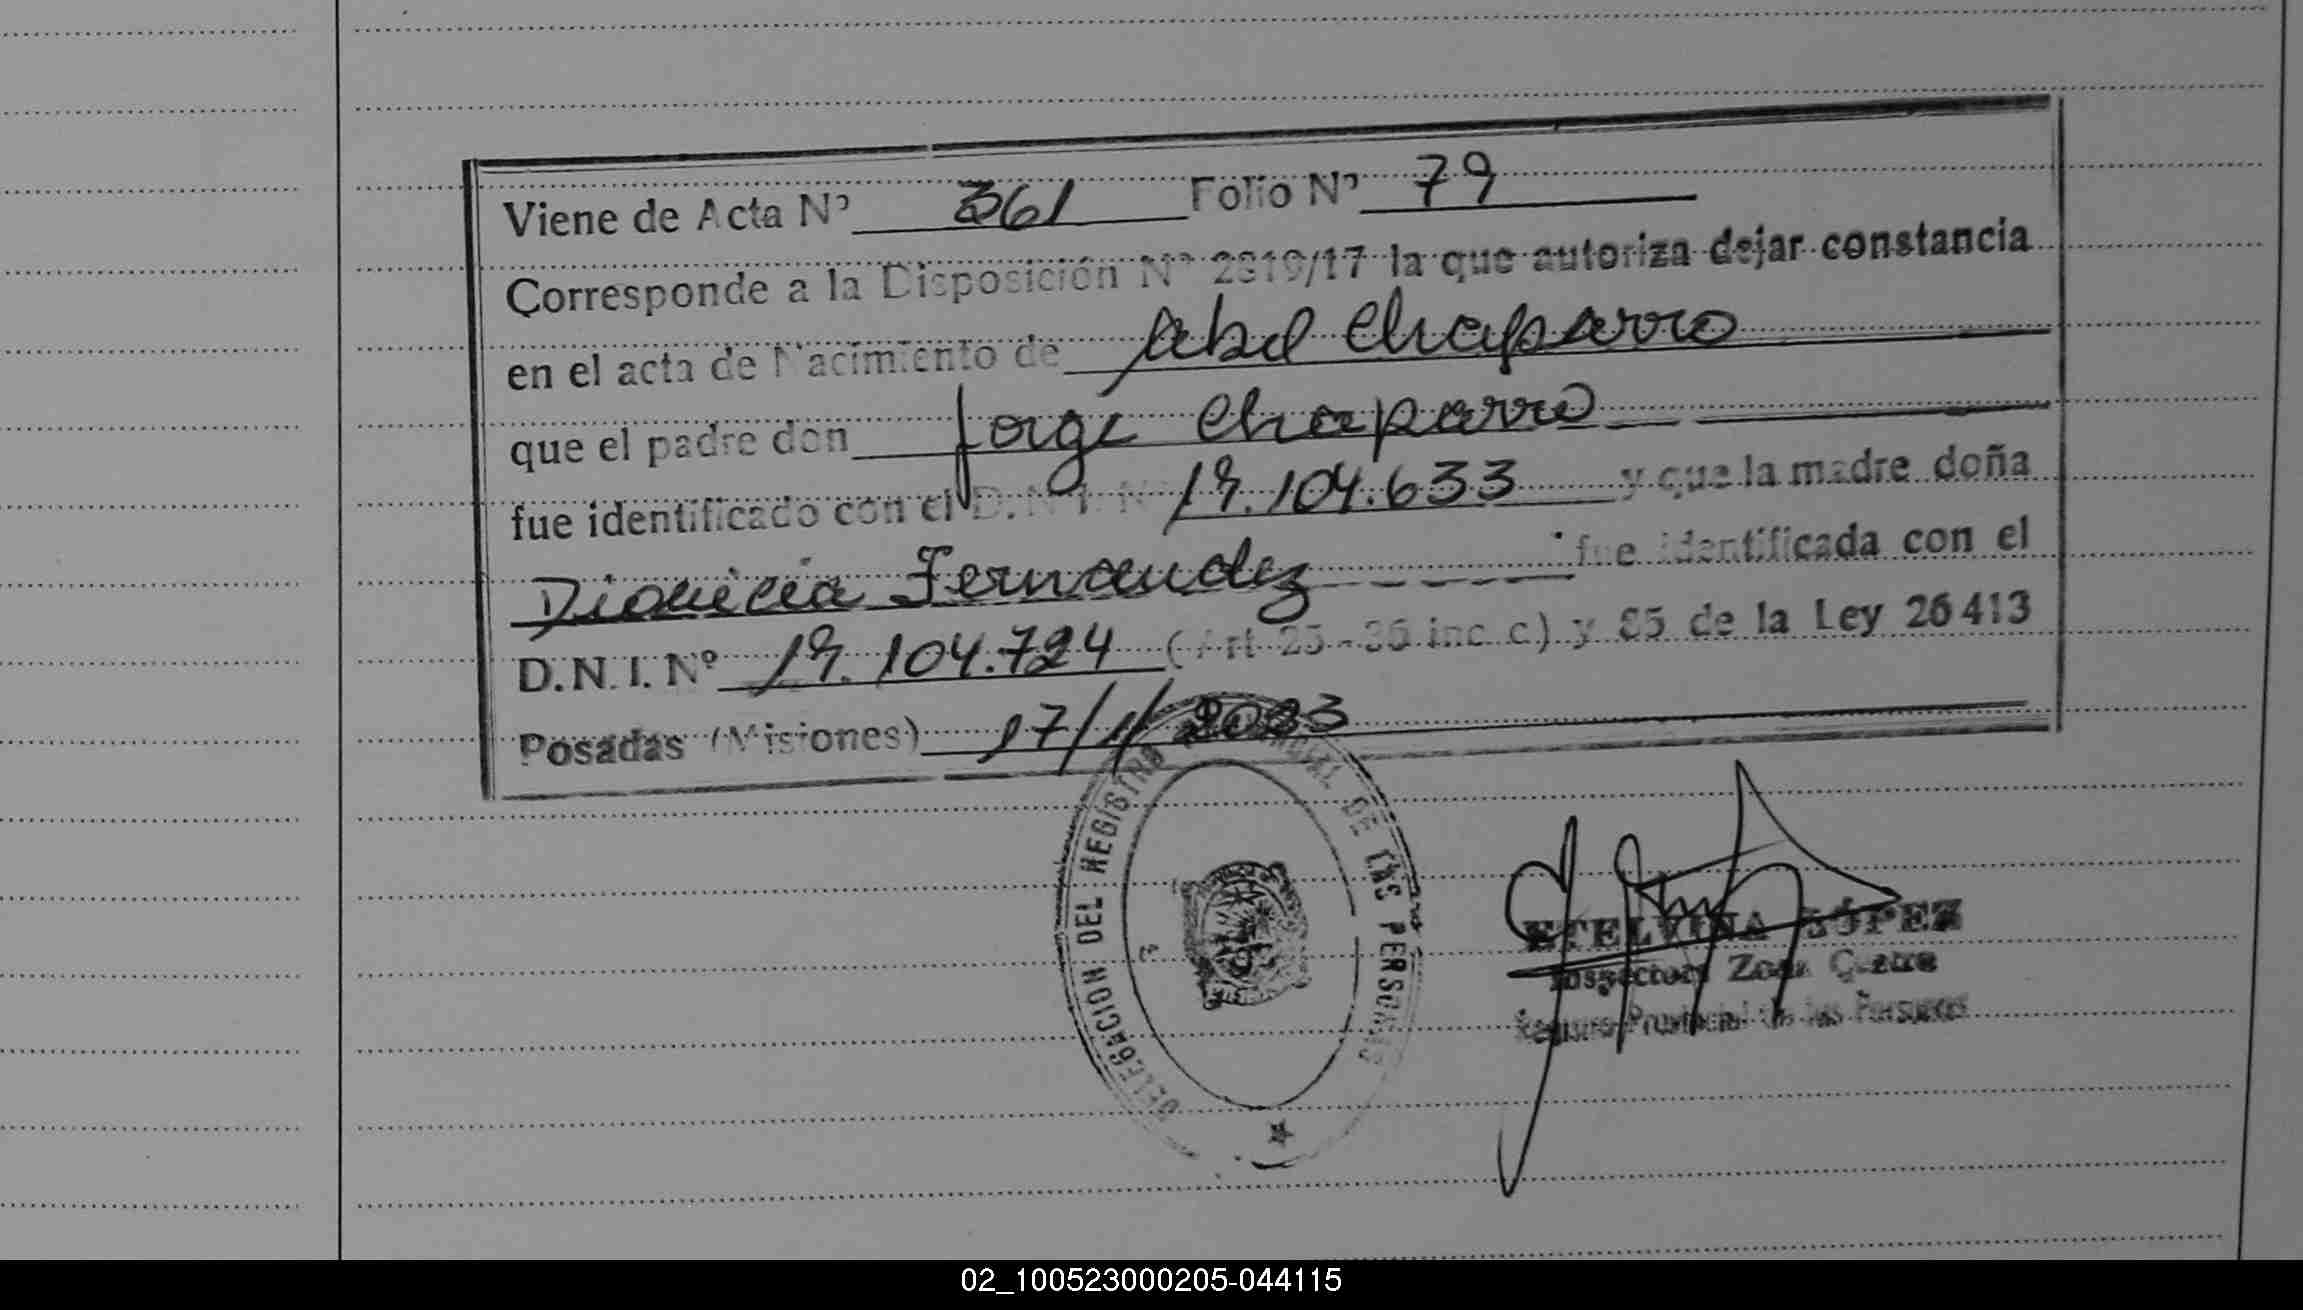 Viene de Acta Nº 361 Folio Nº 79
Corresponde a la Disposición Nº 2819/17 la que autoriza dejar constancia
en el acta de Nacimiento de Abel Chaparro
que el padre don Jorge Chaparro
fue identificado con el D.N.I. Nº 19.104.633 y que la madre doña
Dionicia Fernandez fue identificada con el
D.N.I. Nº 19.104.724 (Art 25-36 inc c) y 85 de la Ley 26413
Posadas (Misiones) 17/1/2023
DELEGACION DEL REGISTRO PROVINCIAL DE LAS PERSONAS
ESTELVINA LÓPEZ
Inspectora Zona
Registro Provincial de las Personas
02_100523000205-044115